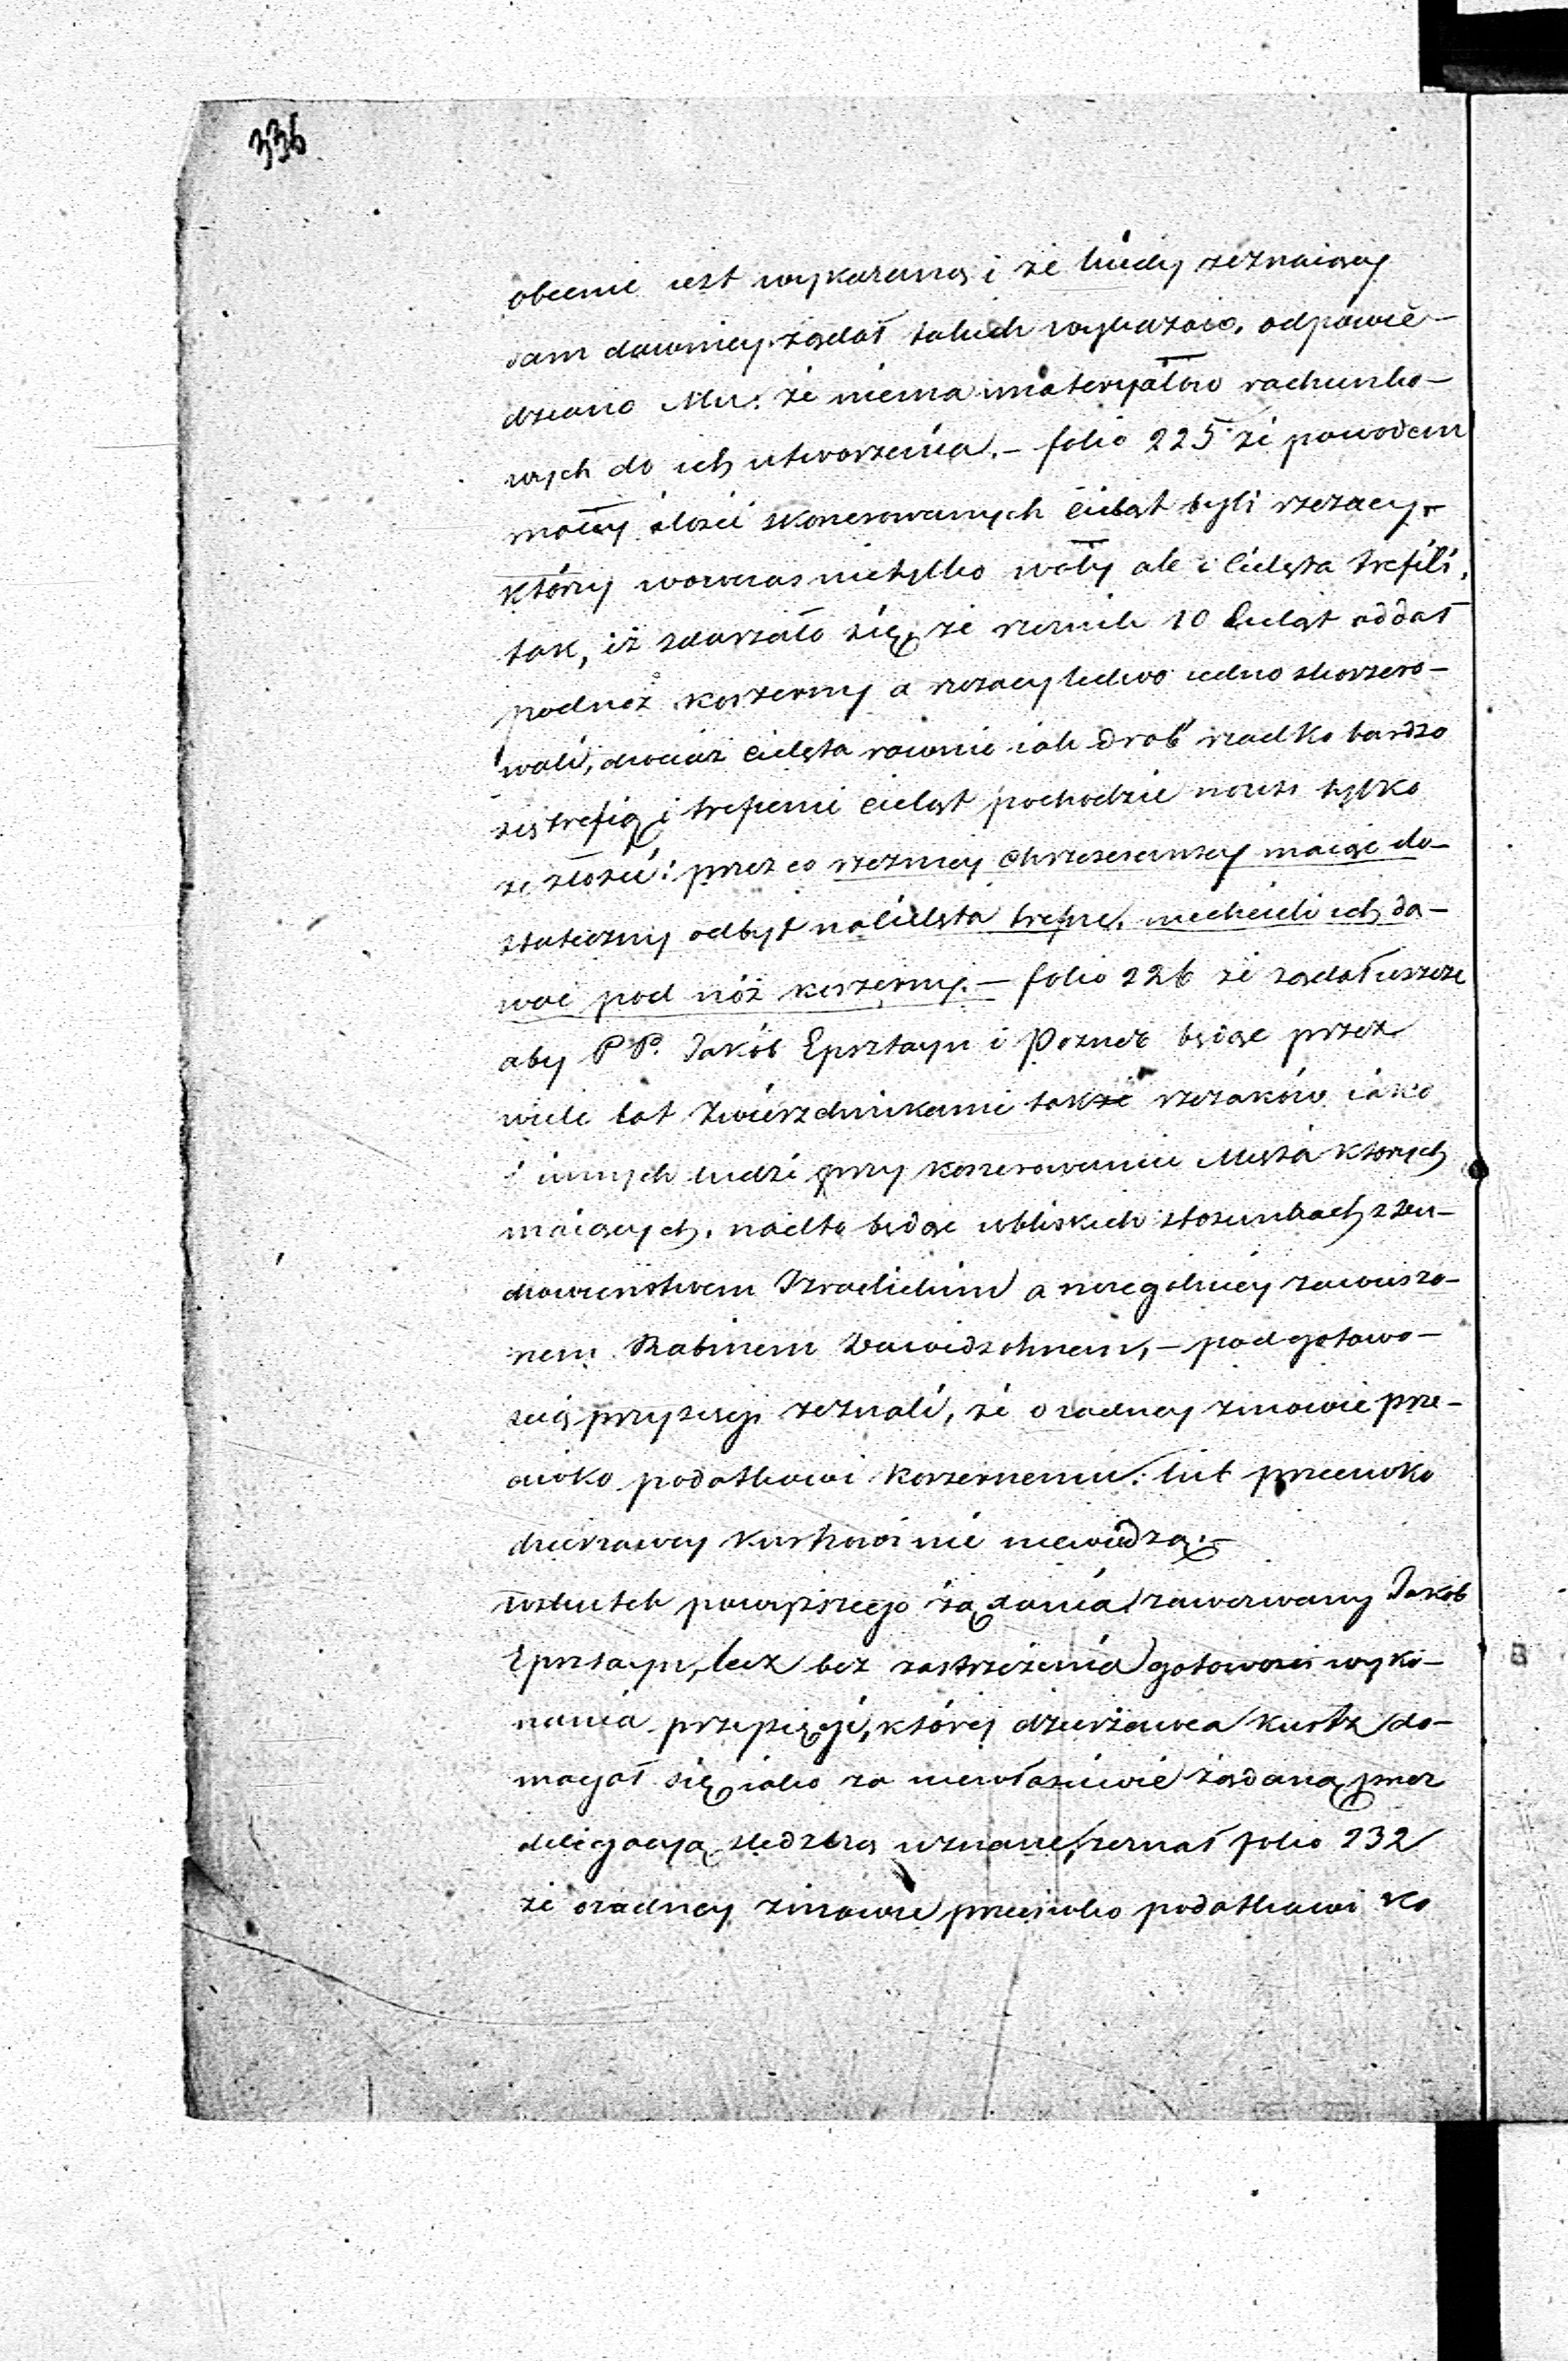 336
obecnie iest wykazaną i że kiedy zeznaiący
sam dawniey żądał takich wykazów, odpowie-
dziano Mu: że niema materyałów rachunko-
wych do ich utworzenia. – folio 225 że powodem
małey ilości skoszerowanych Cieląt byli rzezacy
którzy wowczas nietylko woły ale i Cielęta trefili,
tak, iż zdarzało się, że rzeznik 10 Cieląt oddał
podnoż koszerny a rzezacy ledwo iedno skoszero-
wali, chociaż cielęta rownie iak drob' rzadko bardzo
się trefią i trefienie cieląt pochodzić może tylko
ze złości: przez co rzeznicy Chrześcianscy maiąc do-
stateczny odbyt na Cielęta trefne, niechcieli ich da-
wać pod nóż koszerny. – folio 226 że żądał ieszcze
aby PP. Jakób Epsztayn i Pozner będąc przez
wiele lat Zwierzchnikami także rzezaków iako
i innych ludzi przy koszerowaniu Mięsa ktorych
maiących, nadto będąc w bliskich stosunkach z Du-
chowieństwem Izraelickim a szczególniey
nem Rabinem Dawidsohnem, – pod gotowo-
scią przysięgi zeznali, że o żadney zmowie prze-
ciwko podatkowi koszernemu: lub przeciwko
dzierżawcy Kurtzowi nic niewiedzą. –
wskutek powyższego żądania zawezwany Jakób
Epsztayn, lecz bez zastrzeżenia gotowości wyko-
nania przysięgi, którey dzierżawca Kurtz do-
magał się iako za niewłaściwie żądaną przez
delegacyą śledczą uznane, zeznał folio 232
że o żadney zmowie przeciwko podatkowi ko